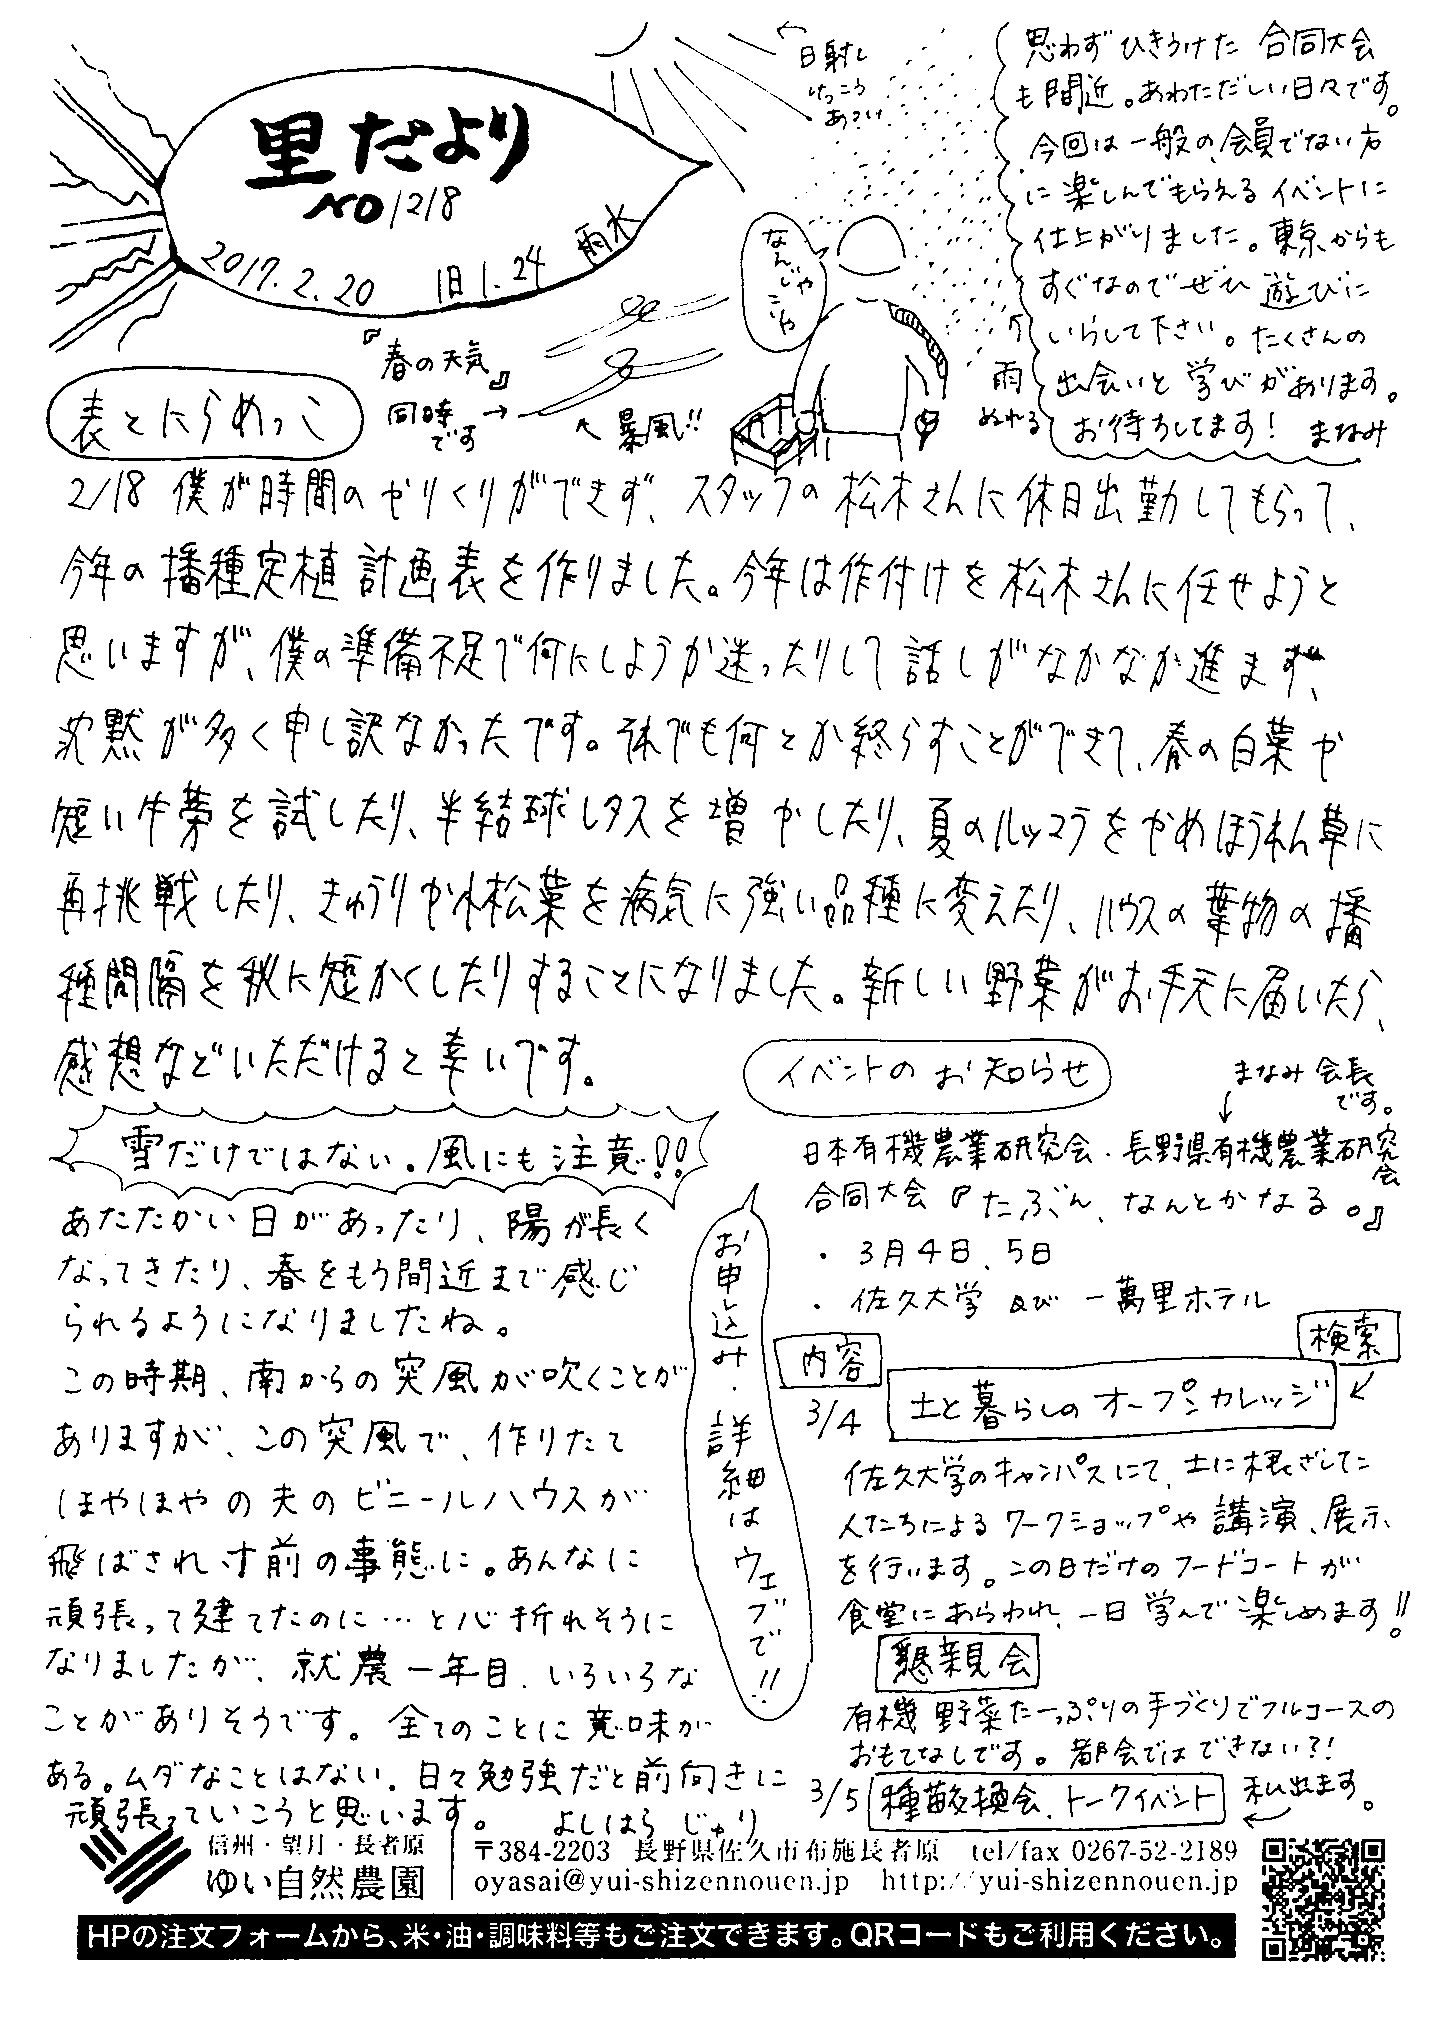 里だより
NO 1218
2017.2.20 旧1.24 雨水
『春の天気』
同時です→
↖暴風!!
なんじゃこりゃ
日射し
けっこう
あつい
雨
ぬれる
思わずひきうけた 合同大会
も間近。あわただしい日々です。
今回は一般の、会員でない方
に楽しんでもらえるイベントに
仕上がりました。東京からも
すぐなのでぜひ遊びに
いらして下さい。たくさんの
出会いと学びがあります。
お待ちしてます! まなみ
表とにらめっこ
2/18 僕が時間のやりくりができず、スタッフの松木さんに休日出勤してもらって、
今年の播種定植計画表を作りました。今年は作付けを松木さんに任せようと
思いますが、僕の準備不足で何にしようか迷ったりして話しがなかなか進まず、
沈黙が多く申し訳なかったです。それでも何とか終らすことができて、春の白菜や
短い牛蒡を試したり、半結球レタスを増やしたり、夏のルッコラをやめほうれん草に
再挑戦したり、きゅうりや小松菜を病気に強い品種に変えたり、ハウスの葉物の播
種間隔を秋に短かくしたりすることになりました。新しい野菜がお手元に届いたら、
感想などいただけると幸いです。
雪だけではない。風にも注意!!
あたたかい日があったり、陽が長く
なってきたり、春をもう間近まで感じ
られるようになりましたね。
この時期、南からの突風が吹くことが
ありますが、この突風で、作りたて
ほやほやの夫のビニールハウスが
飛ばされ寸前の事態に。あんなに
頑張って建てたのに…と心折れそうに
なりましたが、就農一年目、いろいろな
ことがありそうです。全てのことに意味が
ある。ムダなことはない。日々勉強だと前向きに
頑張っていこうと思います。 よしはら じゅり
お申込み・詳細はウェブで!!
イベントのお知らせ
まなみ会長
です。
日本有機農業研究会・長野県有機農業研究会
合同大会『たぶん、なんとかなる。』
・3月4日、5日
・佐久大学 及び 一萬里ホテル
内容
検索
3/4 土と暮らしのオープンカレッジ
佐久大学のキャンパスにて、土に根ざした
人たちによるワークショップや講演、展示
を行います。この日だけのフードコートが
食堂にあらわれ、一日学んで楽しめます!!
懇親会
有機野菜たーっぷりの手づくりでフルコースの
おもてなしです。都会ではできない?!
3/5 種苗交換会、トークイベント 私出ます。
信州・望月・長者原
ゆい自然農園
〒384-2203 長野県佐久市布施長者原 tel/fax 0267-52-2189
oyasai@yui-shizennouen.jp http://yui-shizennouen.jp
HPの注文フォームから、米・油・調味料等もご注文できます。QRコードもご利用ください。